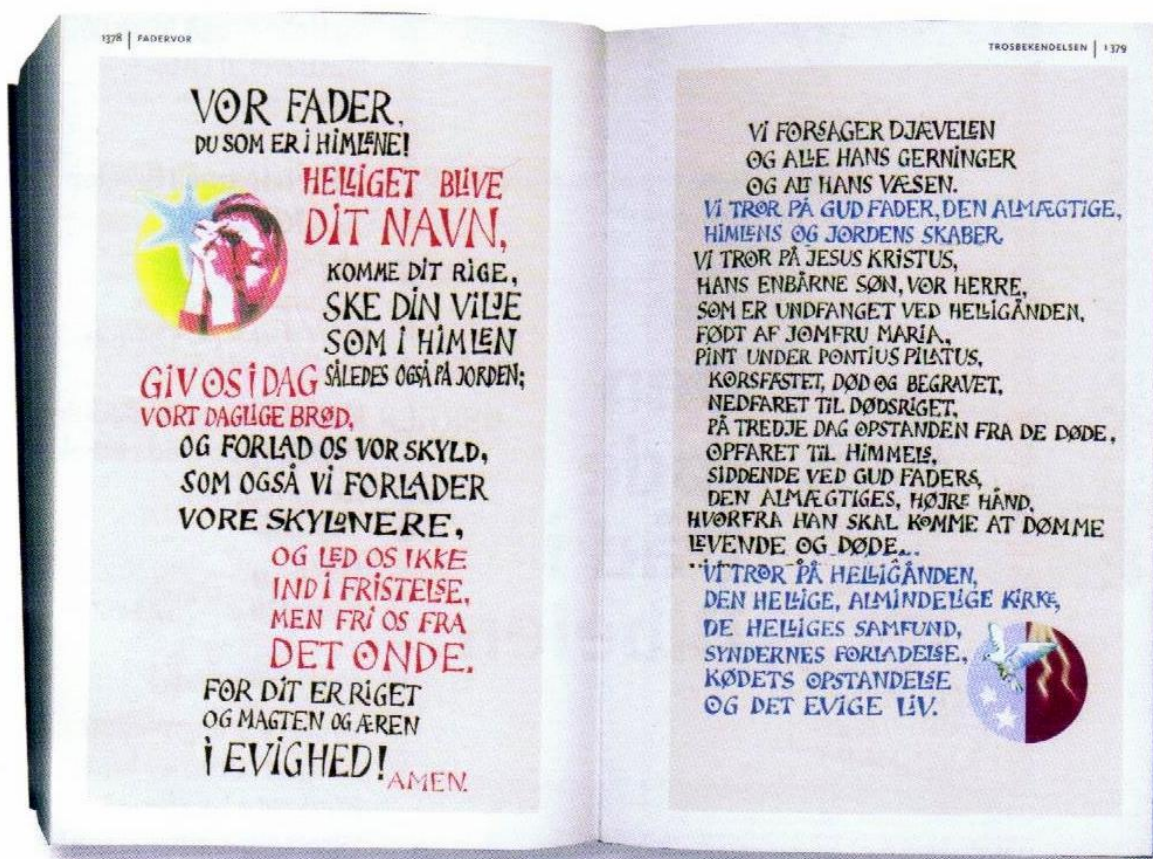 1378 | FADERVOR
VOR FADER,
DU SOM ER I HIMLENE!
HELLIGET BLIVE
DIT NAVN,
KOMME DIT RIGE,
SKE DIN VILJE
SOM I HIMLEN
SÅLEDES OGSÅ PÅ JORDEN;
GIV OS I DAG
VORT DAGLIGE BRØD,
OG FORLAD OS VOR SKYLD,
SOM OGSÅ VI FORLADER
VORE SKYLDNERE,
OG LED OS IKKE
IND I FRISTELSE,
MEN FRI OS FRA
DET ONDE.
FOR DIT ER RIGET
OG MAGTEN OG ÆREN
I EVIGHED!
AMEN.
TROSBEKENDELSEN | 1379
VI FORSAGER DJÆVELEN
OG ALLE HANS GERNINGER
OG ALT HANS VÆSEN.
VI TROR PÅ GUD FADER, DEN ALMÆGTIGE,
HIMLENS OG JORDENS SKABER.
VI TROR PÅ JESUS KRISTUS,
HANS ENBÅRNE SØN, VOR HERRE,
SOM ER UNDFANGET VED HELLIGÅNDEN,
FØDT AF JOMFRU MARIA,
PINT UNDER PONTIUS PILATUS,
KORSFÆSTET, DØD OG BEGRAVET,
NEDFARET TIL DØDSRIGET,
PÅ TREDJE DAG OPSTANDEN FRA DE DØDE,
OPFARET TIL HIMMELS,
SIDDENDE VED GUD FADERS,
DEN ALMÆGTIGES, HØJRE HÅND,
HVORFRA HAN SKAL KOMME AT DØMME
LEVENDE OG DØDE.
VI TROR PÅ HELLIGÅNDEN,
DEN HELLIGE, ALMINDELIGE KIRKE,
DE HELLIGES SAMFUND,
SYNDERNES FORLADELSE,
KØDETS OPSTANDELSE
OG DET EVIGE LIV.